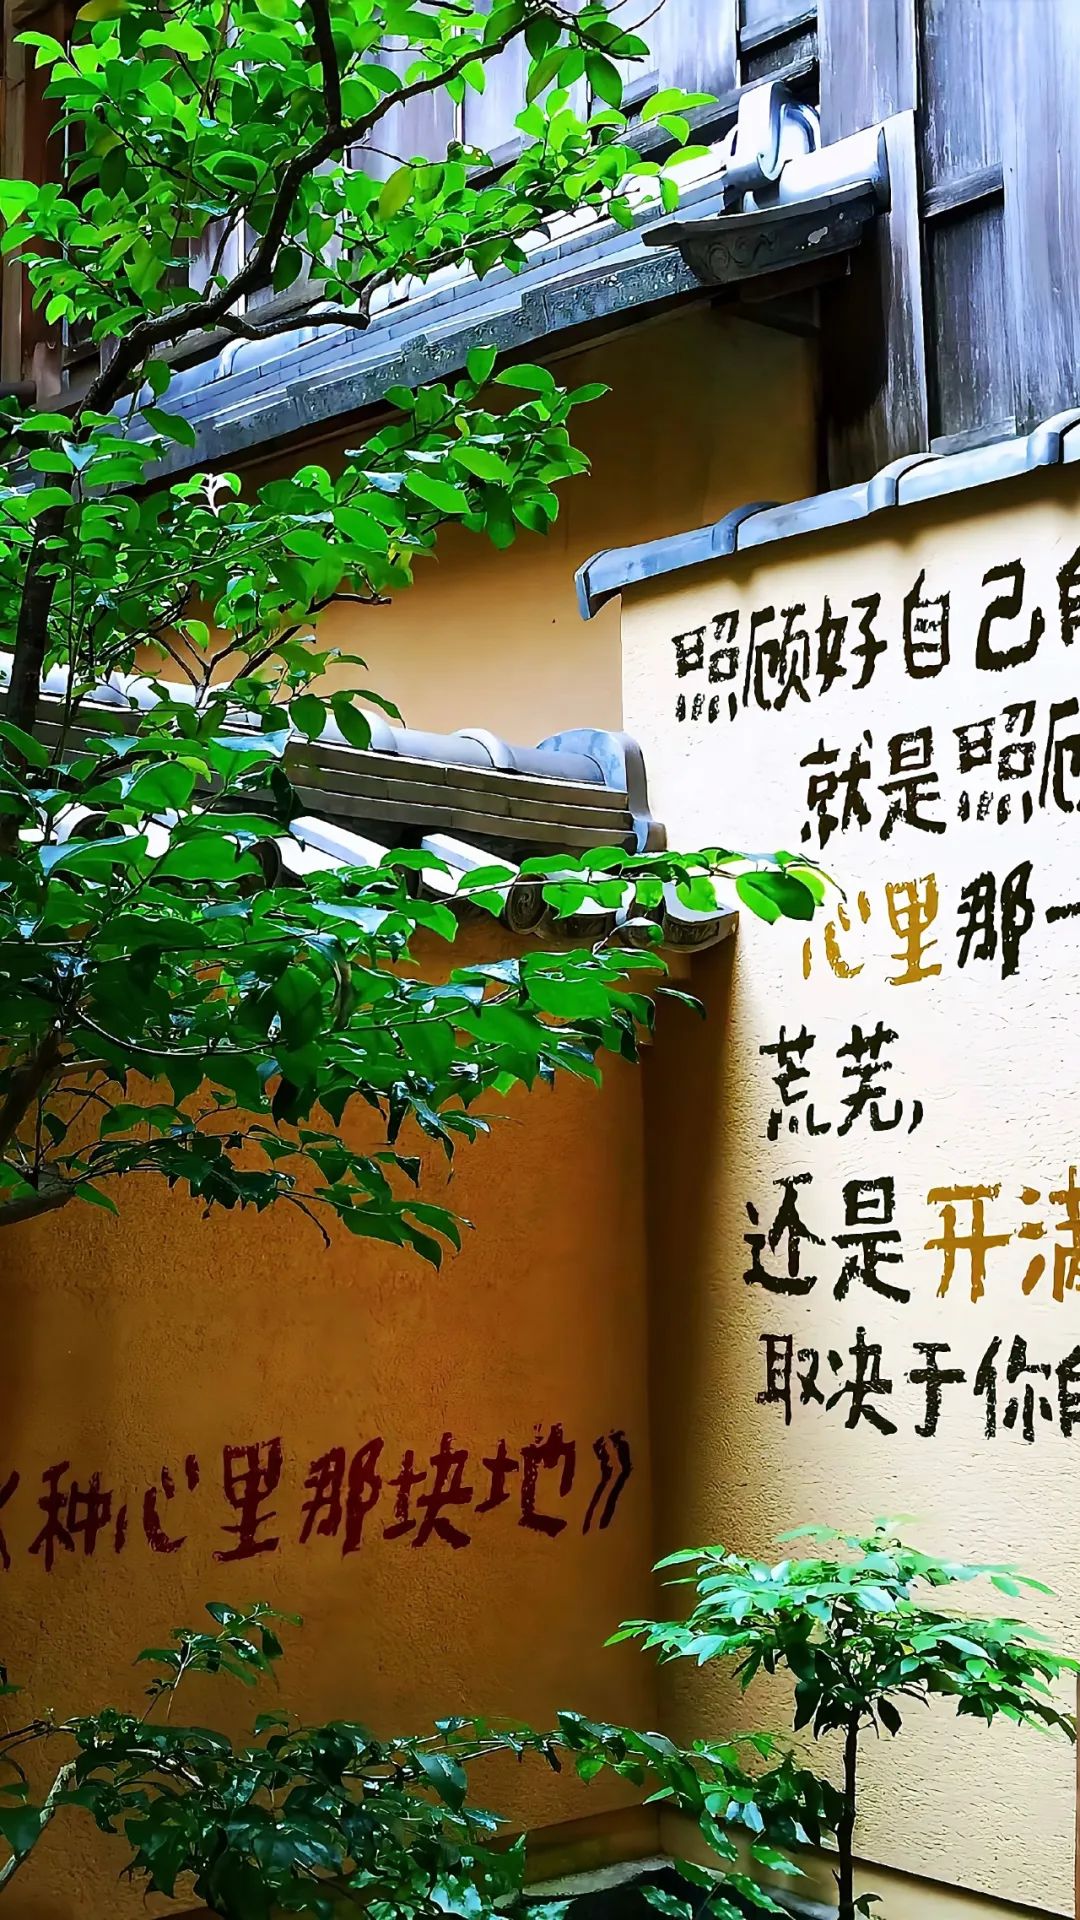 照顾好自己
就是照顾
心里那一
荒芜，
还是开满
取决于你
《种心里那块地》